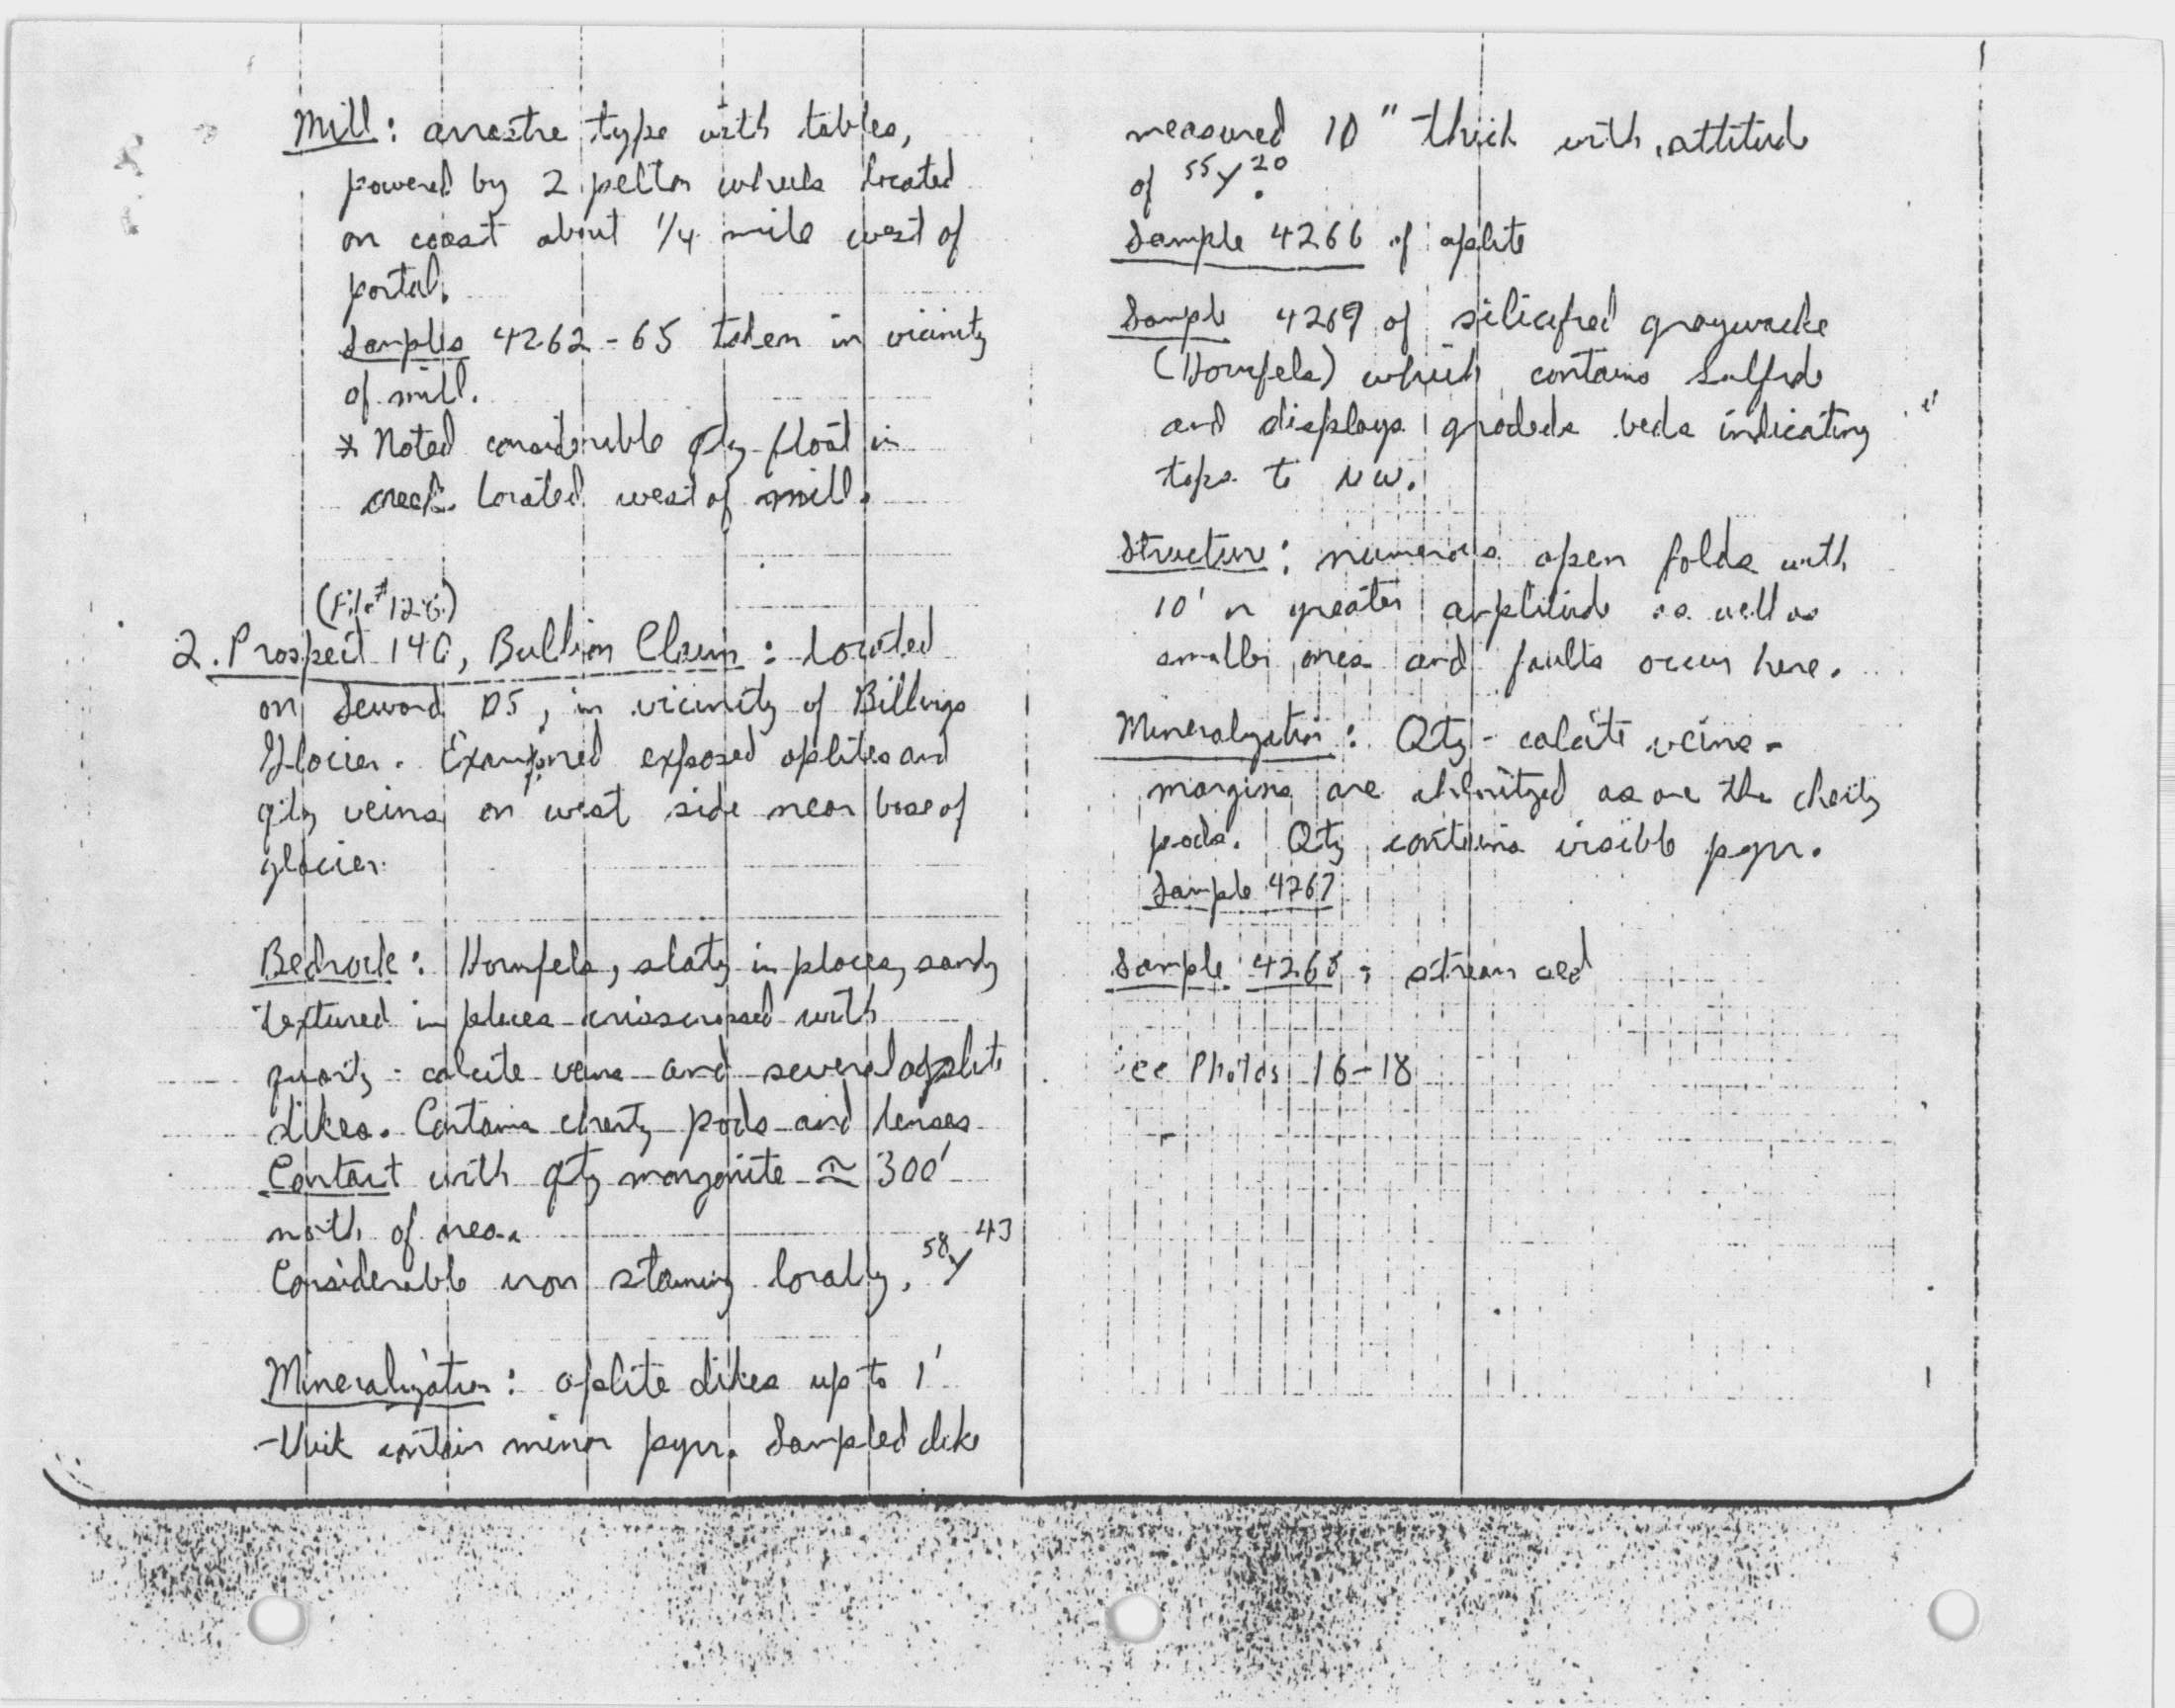 Mill: arrastre type with tables,
powered by 2 pelton wheels located
on coast about 1/4 mile west of
portal.
Samples 4262-65 taken in vicinity
of mill.
* Noted considerable qtz float in
creek located west of mill.
(File # 126)
2. Prospect 140, Bullion Claim: located
on Seward D5, in vicinity of Billings
Glacier. Examined exposed aplites and
qtz veins on west side near base of
glacier.
Bedrock: Hornfels, slaty in places, sandy
textured in places crisscrossed with
quartz-calcite veins and several aplite
dikes. Contains cherty pods and lenses
Contact with qtz monzonite ≃ 300'
north of area.
Considerable iron staining locally. 58 Y 43
Mineralization: aplite dikes up to 1'
thick contain minor pyrr. Sampled dike
measured 10" thick with attitude
of 55 Y 20.
Sample 4266 of aplite
Sample 4269 of silicified graywacke
(Hornfels) which contains sulfide
and displays graded beds indicating
tops to NW.
Structure: numerous open folds with
10' or greater amplitude as well as
smaller ones and faults occur here.
Mineralization: Qtz-calcite veins-
margins are chloritized as are the cherty
pods. Qtz contains visible pyrr.
Sample 4267
Sample 4268; stream sed
See Photos 16-18